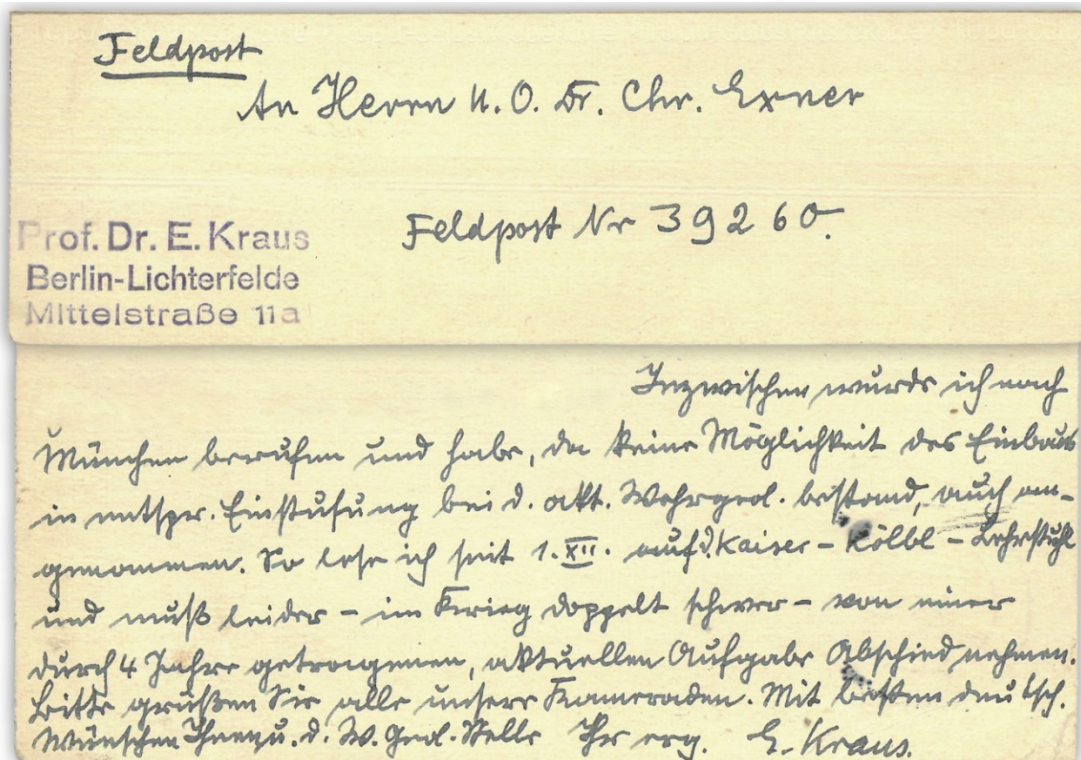 Feldpost
An Herrn U.O. Dr. Chr. Exner
Feldpost Nr 39260.
Prof. Dr. E. Kraus
Berlin-Lichterfelde
Mittelstraße 11a
Inzwischen wurde ich nach
München berufen und habe, da keine Möglichkeit des Einbaus
in entspr. Einstufung bei d. akt. Wehrgeol. bestand, auch an-
genommen. So lese ich seit 1. XII. auf d. Kaiser-Kölbl-Lehrstuhl
und muß leider – im Krieg doppelt schwer – von einer
durch 4 Jahre getragenen, aktuellen Aufgabe Abschied nehmen.
Bitte grüßen Sie alle unsere Kameraden. Mit besten deutsch.
Wünschen Ihnen u. d. W. Geol. Stelle Ihr erg. E. Kraus.